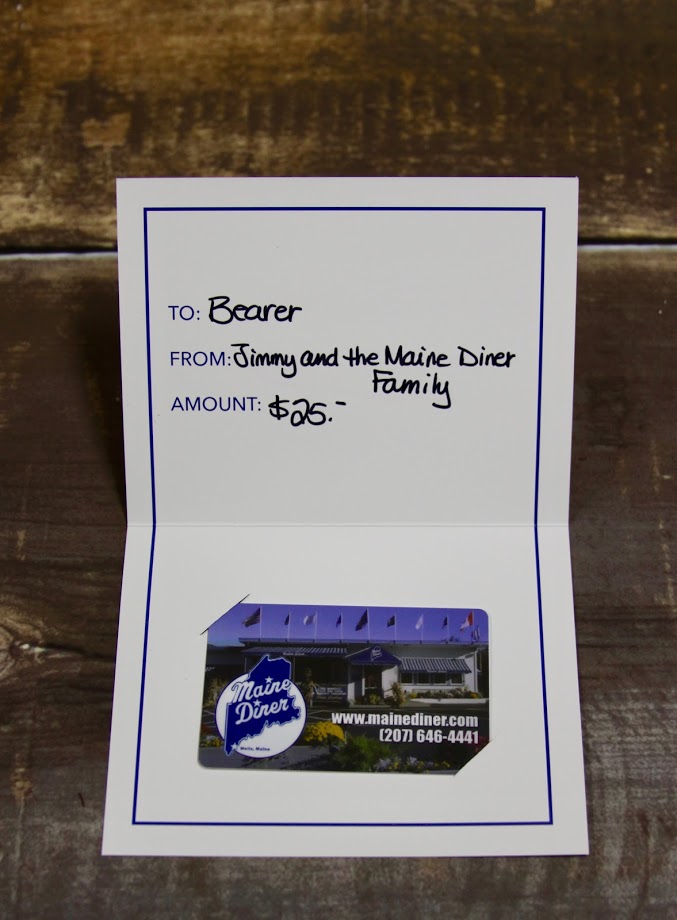 TO: Bearer
FROM: Jimmy and the Maine Diner
Family
AMOUNT: $25.-
Maine
Diner
Wells, Maine
www.mainediner.com
(207) 646-4441